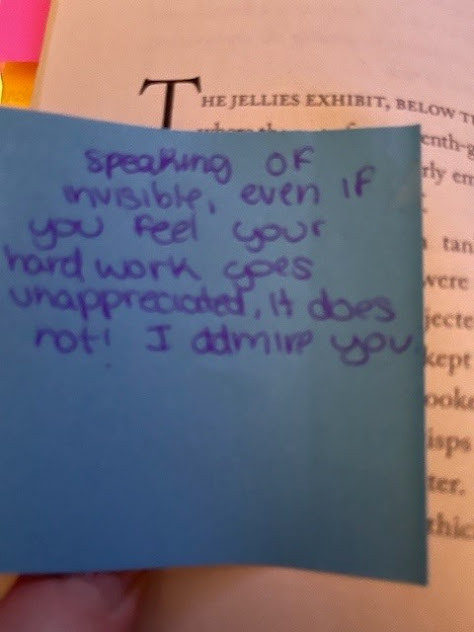 THE JELLIES EXHIBIT, BELOW
speaking of
invisible, even if
you feel your
hard work goes
unappreciated, it does
not! I admire you
tan
were
kept
ter.